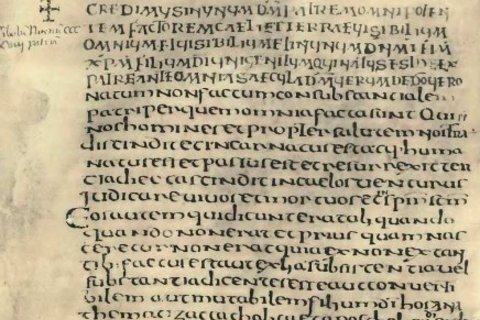 CREDIMUS IN UNUM DM PATREM OMNIPOTEN
TEM FACTOREM CAELI ET TERRAE UISIBILIUM
OMNIUM INUISIBILIUM ET IN UNUM DNM IHM
XPM FILIUM DI UNIGENITUM QUI NATUS EST EX
PATRE ANTE OMNIA SAECULA DM UERUM DE DO UERO
natum non factum consubstantialem
patri per quem omnia facta sunt Qui
nos homines et propter salutem nostra
discindit et incarnatus est ac humana
natus est et passus est et resurrexit ter
tia die et ascindit in caelos uenturus
iudicare uiuos et mortuos et in spm scm
Eos autem qui dicunt erat aliquando
quando non erat et prius quam nas
ceretur non erat quia ex non extan
tib: factus est aut ex alia substentia uel
substantia dicentes esse aut conuerti
bilem aut mutabilem filium di hos ana